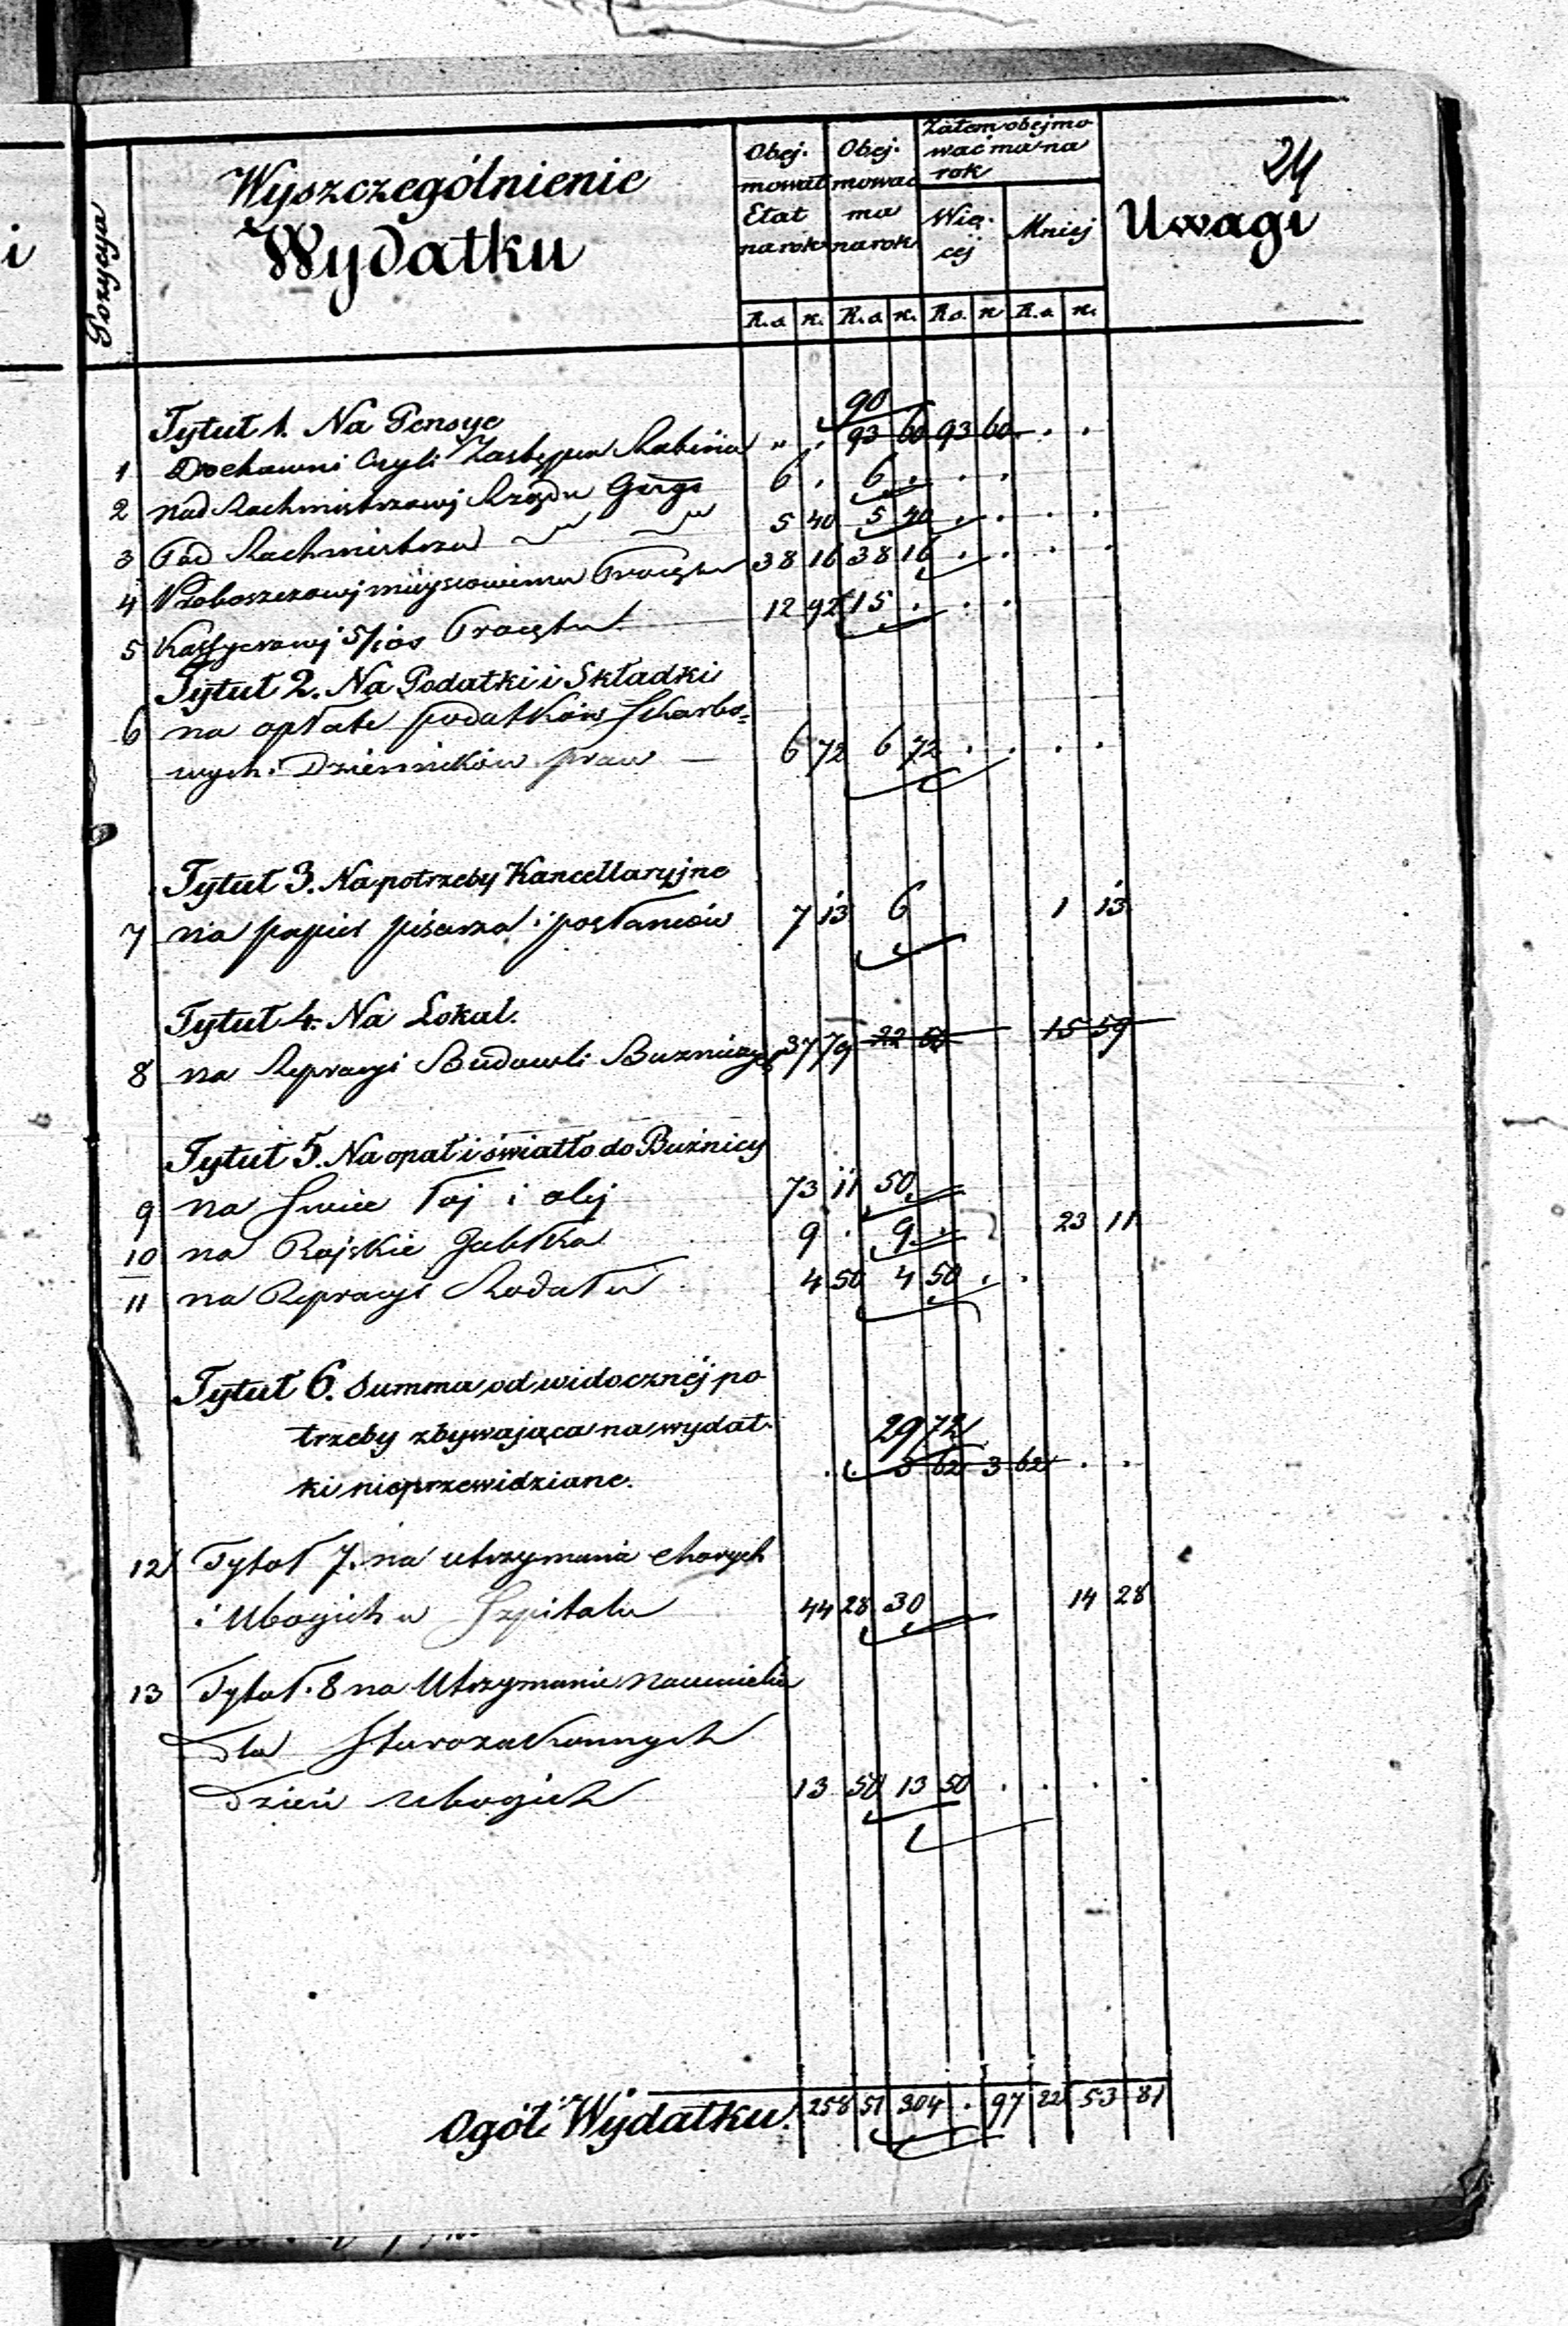 24
Pozycya
Wyszczególnienie
Wydatku
Obej-
mował
Etat
na rok
Obej-
mować
ma
na rok
Zatem obejmo
wać ma na
rok
Wię-
cej
Mniej
Uwagi
R.s k. R.s k. R.s. k R.s k.
Tytuł 1. Na Pensye 90
1 Duchowni Czyli Zastępca Rabina " . 93 60 93 60 . .
2 nad Rachmistrzowj Rządu 6 . 6 . . .
3 Pod Rachmistrzu 5 40 5 40 . . . .
4 Proboszczowj miejscowimu 38 16 38 16 . . . .
5 Kassyerowj 5/100 Procętu 12 92 15 . . .
Tytuł 2. Na Podatki i Składki
6 na opłate podatków Skarbo=
wych i Dzienników praw — 6 72 6 72 . . . .
Tytuł 3. Na potrzeby Kancellaryjne
7 na papier pisarza i posłańców 7 13 6 1 13
Tytuł 4. Na Lokal.
8 na Repracyi Budowli Buzniczych 37 79 22 15 59
Tytuł 5. Na opał i światło do Buźnicy
9 na Swice Toj i olej 73 11 50 23 11
10 na Rajskie Jabłka 9 . 9 .
11 na Repracyi Rodału 4 50 4 50 . .
Tytuł 6. Summa od widocznéj po-
trzeby zbywająca na wydat- 29 72
ki nieprzewidziane. . . 3 62 3 62 . .
12 Tytoł 7. na utrzymania chorych
i Ubogich w Szpitalu 44 28 30 14 28
13 Tytoł. 8 na Utrzymanie Nauczicila
Dla Starozakonnych
Dzieci Ubogich 13 50 13 50 . . . .
Ogół Wydatku. 258 51 304 . 97 22 53 81